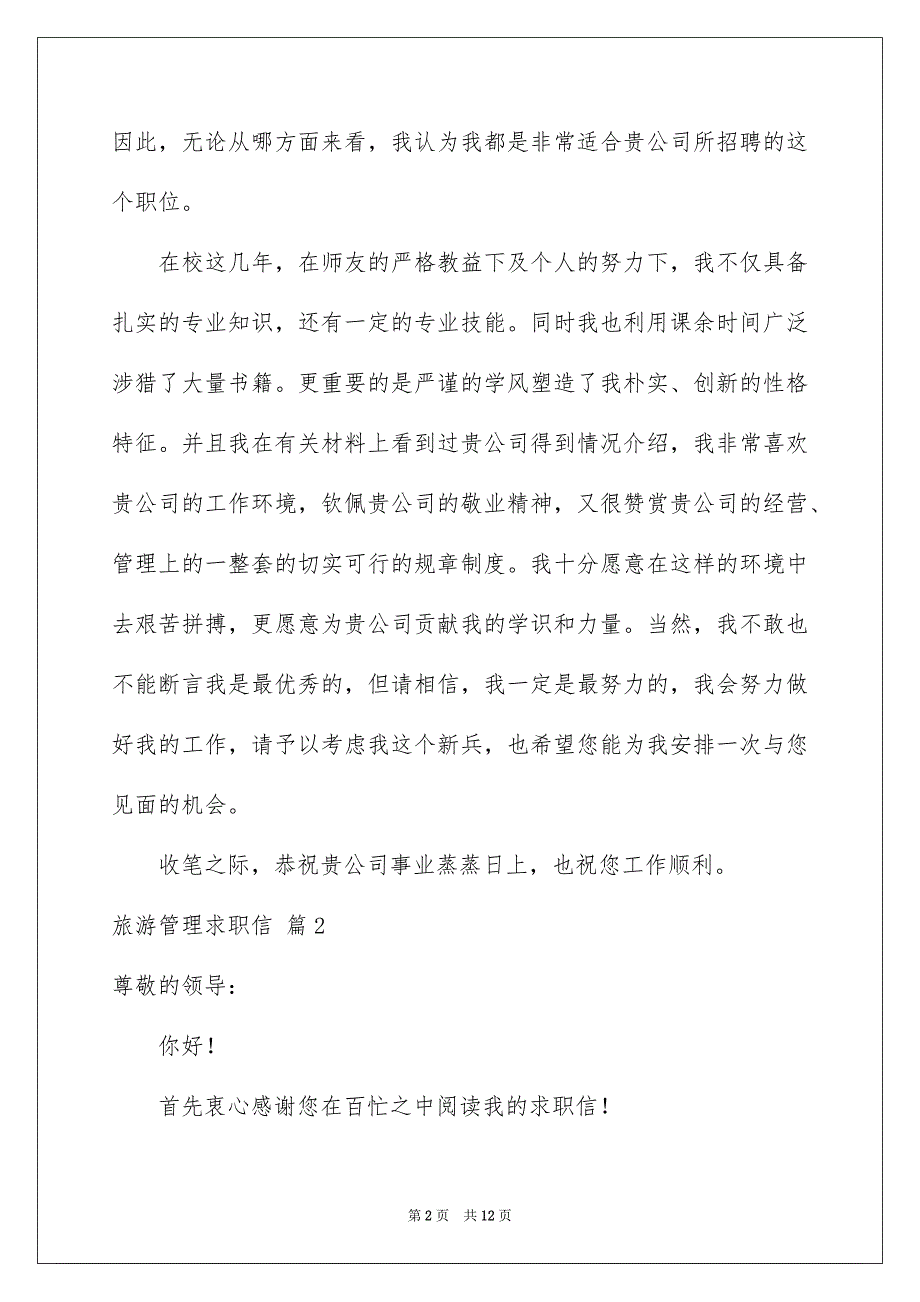 因此，无论从哪方面来看，我认为我都是非常适合贵公司所招聘的这
个职位。
在校这几年，在师友的严格教益下及个人的努力下，我不仅具备
扎实的专业知识，还有一定的专业技能。同时我也利用课余时间广泛
涉猎了大量书籍。更重要的是严谨的学风塑造了我朴实、创新的性格
特征。并且我在有关材料上看到过贵公司得到情况介绍，我非常喜欢
贵公司的工作环境，钦佩贵公司的敬业精神，又很赞赏贵公司的经营、
管理上的一整套的切实可行的规章制度。我十分愿意在这样的环境中
去艰苦拼搏，更愿意为贵公司贡献我的学识和力量。当然，我不敢也
不能断言我是最优秀的，但请相信，我一定是最努力的，我会努力做
好我的工作，请予以考虑我这个新兵，也希望您能为我安排一次与您
见面的机会。
收笔之际，恭祝贵公司事业蒸蒸日上，也祝您工作顺利。
旅游管理求职信 篇2
尊敬的领导：
你好！
首先衷心感谢您在百忙之中阅读我的求职信！
第 2 页 共 12 页